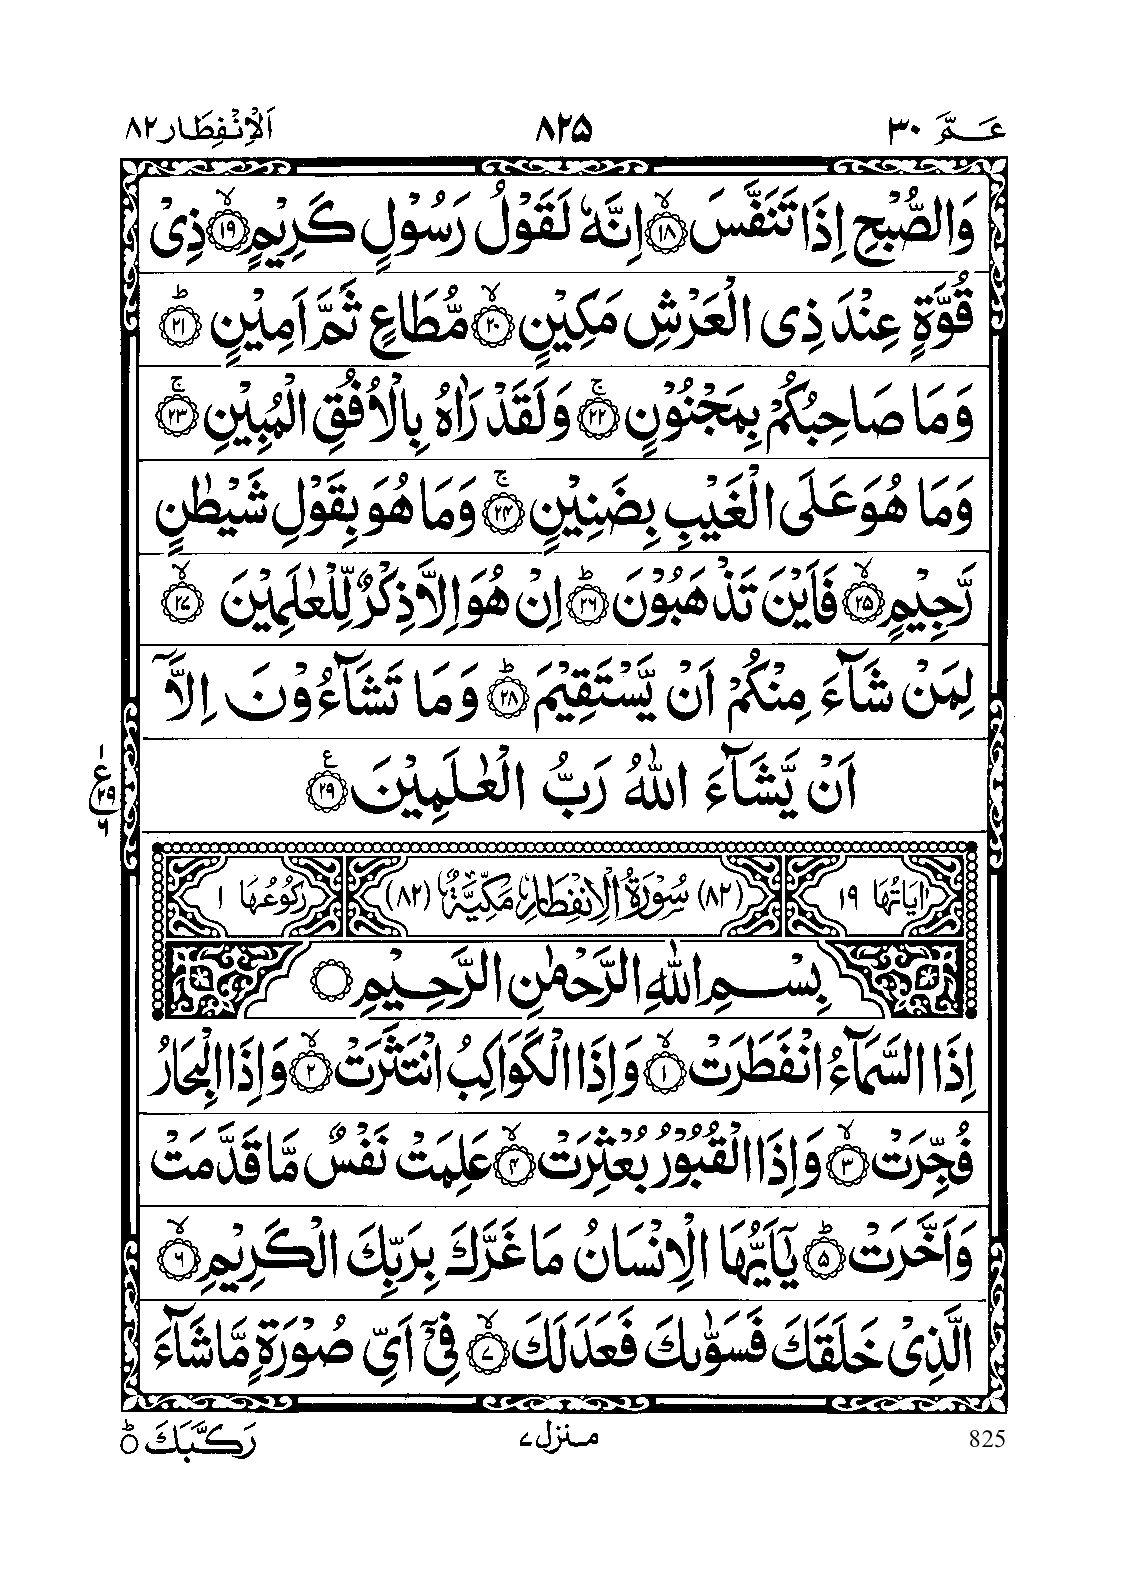 عَـمَّ ۳۰
۸۲۵
اَلْاِنْفِطَار ۸۲
وَالصُّبْحِ اِذَا تَنَفَّسَ ۙ﴿۱۸﴾ اِنَّهٗ لَقَوْلُ رَسُوْلٍ كَرِيْمٍ ۙ﴿۱۹﴾ ذِىْ
قُوَّةٍ عِنْدَ ذِى الْعَرْشِ مَكِيْنٍ ۙ﴿۲۰﴾ مُّطَاعٍ ثَمَّ اَمِيْنٍ ؕ﴿۲۱﴾
وَمَا صَاحِبُكُمْ بِمَجْنُوْنٍ ۚ﴿۲۲﴾ وَلَقَدْ رَاٰهُ بِالْاُفُقِ الْمُبِيْنِ ۚ﴿۲۳﴾
وَمَا هُوَ عَلَى الْغَيْبِ بِضَنِيْنٍ ۚ﴿۲۴﴾ وَمَا هُوَ بِقَوْلِ شَيْطٰنٍ
رَّجِيْمٍ ۙ﴿۲۵﴾ فَاَيْنَ تَذْهَبُوْنَ ؕ﴿۲۶﴾ اِنْ هُوَ اِلَّا ذِكْرٌ لِّلْعٰلَمِيْنَ ۙ﴿۲۷﴾
لِمَنْ شَآءَ مِنْكُمْ اَنْ يَّسْتَقِيْمَ ؕ﴿۲۸﴾ وَمَا تَشَآءُوْنَ اِلَّاۤ
اَنْ يَّشَآءَ اللّٰهُ رَبُّ الْعٰلَمِيْنَ ﴿۲۹﴾ ع
۱
ع ۲۹
۶
اٰيَاتُهَا ۱۹
(۸۲) سُوْرَةُ الْاِنْفِطَارِ مَكِّيَّةٌ (۸۲)
رُكُوْعُهَا ۱
بِسْمِ اللّٰهِ الرَّحْمٰنِ الرَّحِيْمِ ○
اِذَا السَّمَآءُ انْفَطَرَتْ ۙ﴿۱﴾ وَاِذَا الْكَوَاكِبُ انْتَثَرَتْ ۙ﴿۲﴾ وَاِذَا الْبِحَارُ
فُجِّرَتْ ۙ﴿۳﴾ وَاِذَا الْقُبُوْرُ بُعْثِرَتْ ۙ﴿۴﴾ عَلِمَتْ نَفْسٌ مَّا قَدَّمَتْ
وَاَخَّرَتْ ؕ﴿۵﴾ يٰۤاَيُّهَا الْاِنْسَانُ مَا غَرَّكَ بِرَبِّكَ الْكَرِيْمِ ۙ﴿۶﴾
الَّذِىْ خَلَقَكَ فَسَوّٰىكَ فَعَدَلَكَ ۙ﴿۷﴾ فِىْۤ اَىِّ صُوْرَةٍ مَّا شَآءَ
رَكَّبَكَ ؕ○
منزل ۷
825